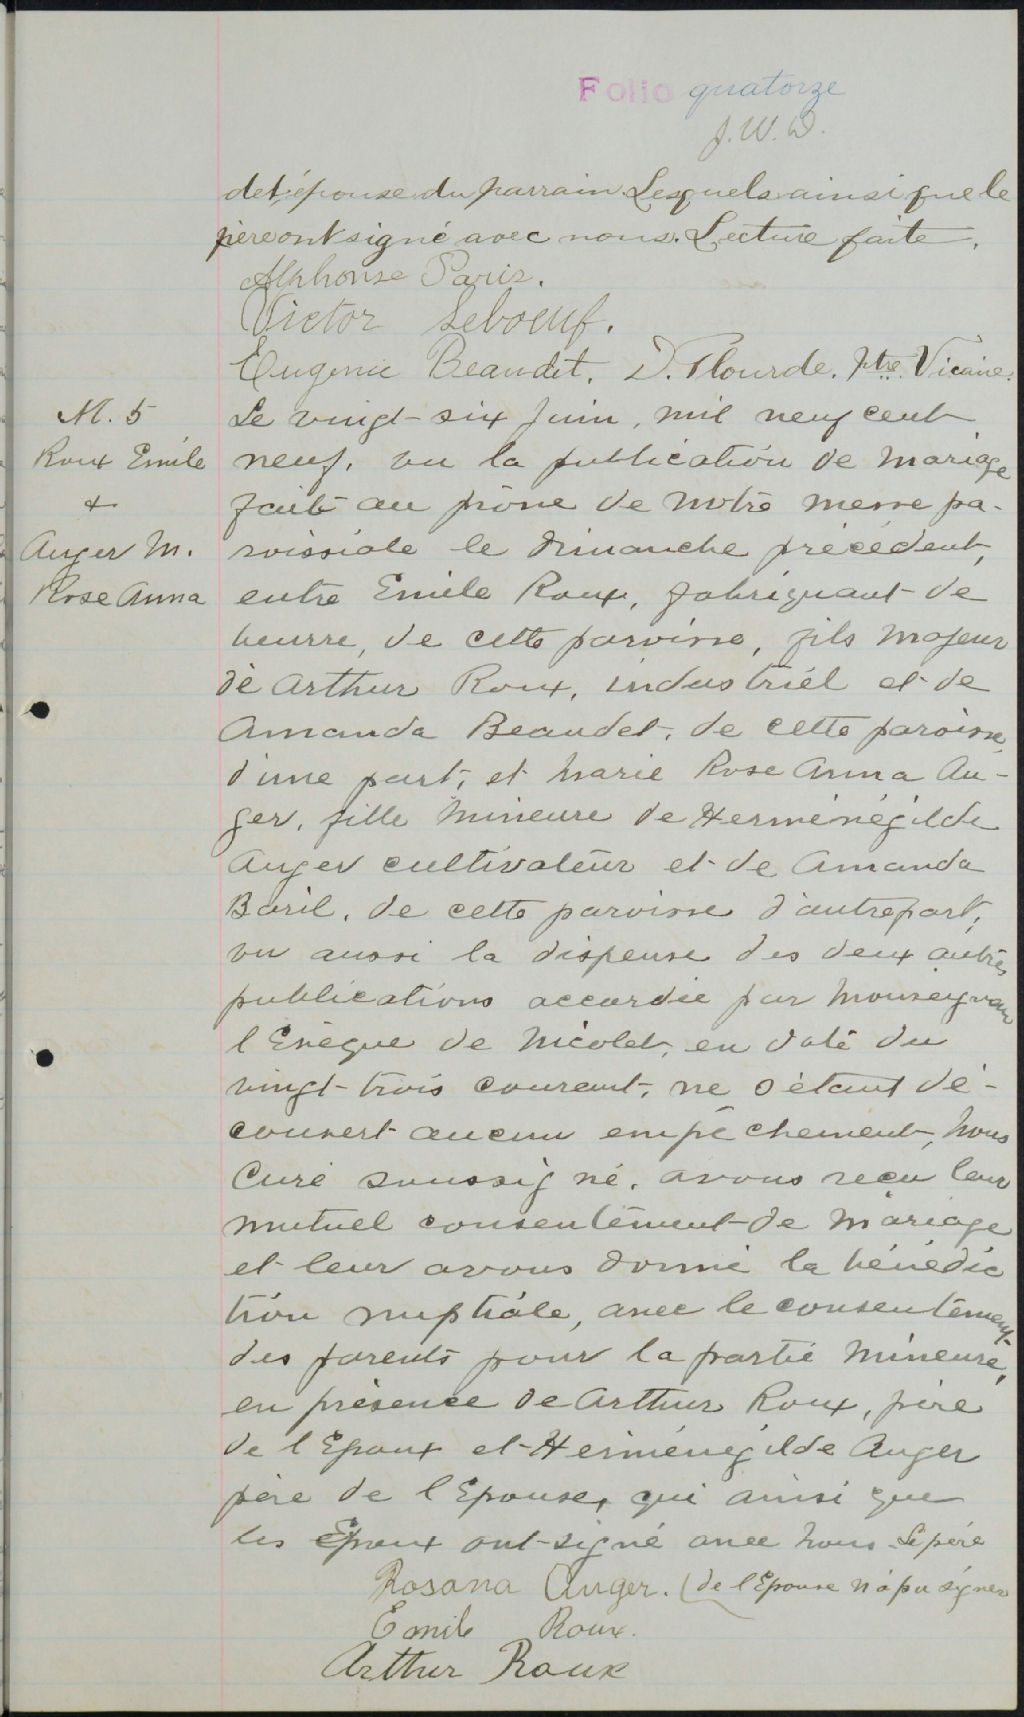 Folio quatorze
J. W. D.
det, épouse du parrain. Lesquels ainsi que le
père ont signé avec nous. Lecture faite.
Alphonse Paris.
Victor Leboeuf.
Eugenie Beaudet. D. Plourde. Ptre Vicaire.
M. 5
Roux Emile
+
Auger M.
Rose Anna
Le vingt-six Juin, mil neuf cent
neuf, vu la publication de mariage
faite au prône de notre messe pa-
roissiale le dimanche précédent,
entre Emile Roux, fabriquant de
beurre, de cette paroisse, fils majeur
de Arthur Roux, industriel et de
Amanda Beaudet, de cette paroisse
d'une part, et Marie Rose Anna Au-
ger, fille mineure de Herménégilde
Auger cultivateur et de Amanda
Baril, de cette paroisse d'autre part,
vu aussi la dispense des deux autres
publications accordée par Monseigneur
l'Evêque de Nicolet, en date du
vingt-trois courant, ne s'étant dé-
couvert aucun empêchement, Nous
Curé soussigné, avons reçu leur
mutuel consentement de mariage
et leur avons donné la bénédic
tion nuptiale, avec le consentement
des parents pour la partie mineure,
en présence de Arthur Roux, père
de l'Epoux et Herménégilde Auger
père de l'Epouse, qui ainsi que
les Epoux ont signé avec nous. Le père
Rosana Auger. (de l'Epouse n'a pu signer
Emile Roux.
Arthur Roux